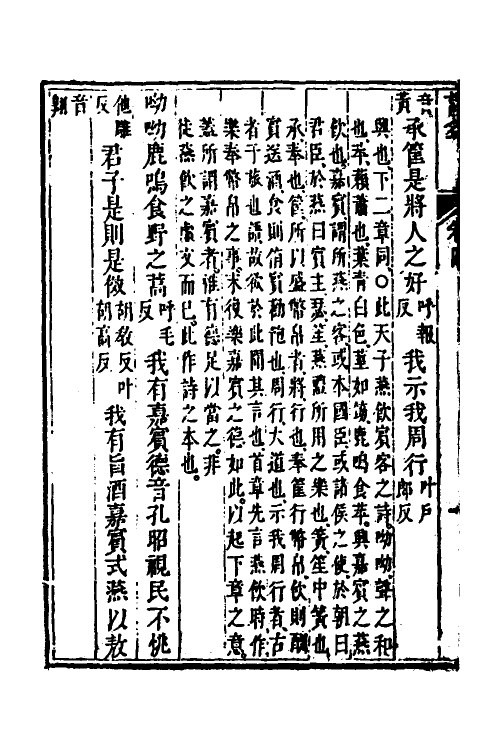 音黃承筐是將人之好叶報反我示我周行叶戶郎反
興也下二章同○此天子燕飲賓客之詩呦呦聲之和
也苹藾蕭也葉青白色莖如筯鹿鳴食苹興嘉賓之燕
飲也嘉賓謂所燕之客或本國臣或諸侯之使於朝曰
君臣於燕曰賓主瑟笙燕禮所用之樂也簧笙中簧也
承奉也筐所以盛幣帛者將行也奉筐行幣帛飲則酬
賓送酒食則侑賓勸飽也周行大道也示我周行者古
者于旅也語故欲於此聞其言也首章先言燕飲時作
樂奉幣帛之事末後樂嘉賓之德如此以起下章之意
蓋所謂嘉賓者惟有德足以當之非
徒燕飲之虛文而已此作詩之本也
呦呦鹿鳴食野之蒿叶毛反我有嘉賓德音孔昭視民不恌
他雕反君子是則是傚胡敎反叶胡高反我有旨酒嘉賓式燕以敖
音翱